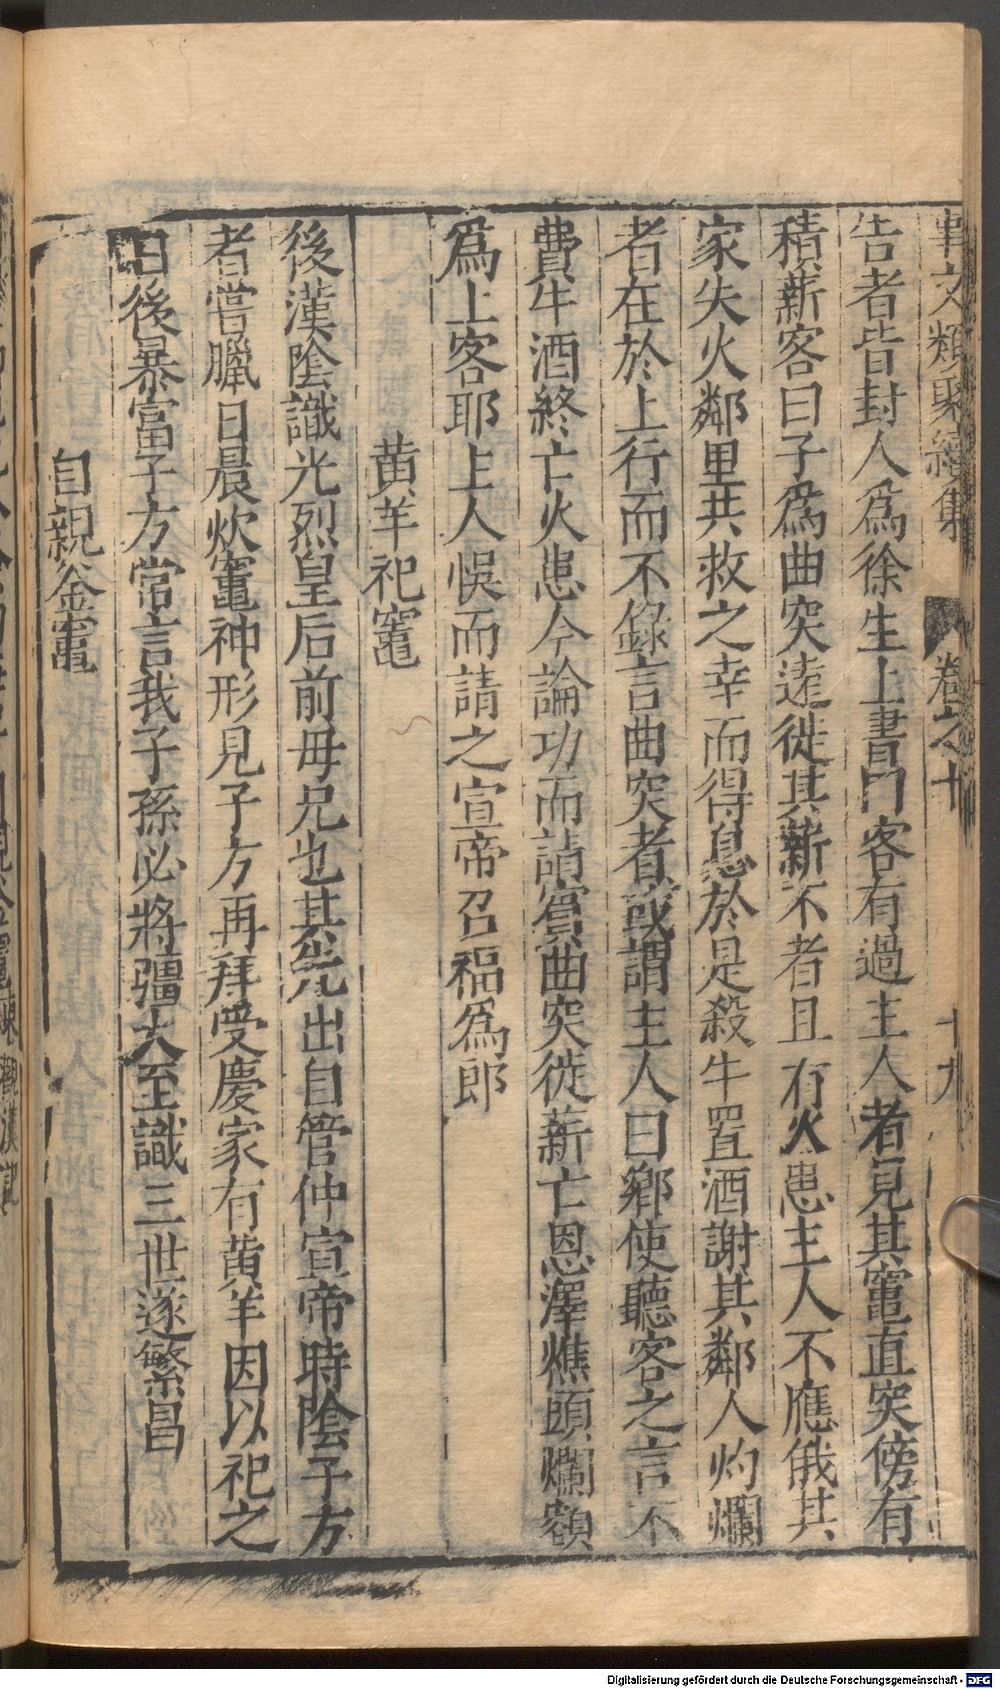 事文類聚續集 卷之十 十九
告者皆封人爲徐生上書門客有過主人者見其竈直突傍有
積薪客曰子爲曲突逺徙其薪不者且有火患主人不應俄其
家失火鄰里共救之幸而得息於是殺牛置酒謝其鄰人灼爛
者在於上行而不錄言曲突者或謂主人曰鄉使聽客之言不
費牛酒終亡火患今論功而請賓曲突徙薪亡恩澤燋頭爛額
爲上客耶上人悞而請之宣帝召福爲郎
黄羊祀竈
後漢陰識光烈皇后前母兄也其先出自管仲宣帝時陰子方
者嘗臘日晨炊竈神形見子方再拜受慶家有黄羊因以祀之
自後暴富子方常言我子孫必將彊大至識三世遂繁昌
自親釜竈
Digitalisierung gefördert durch die Deutsche Forschungsgemeinschaft - DFG